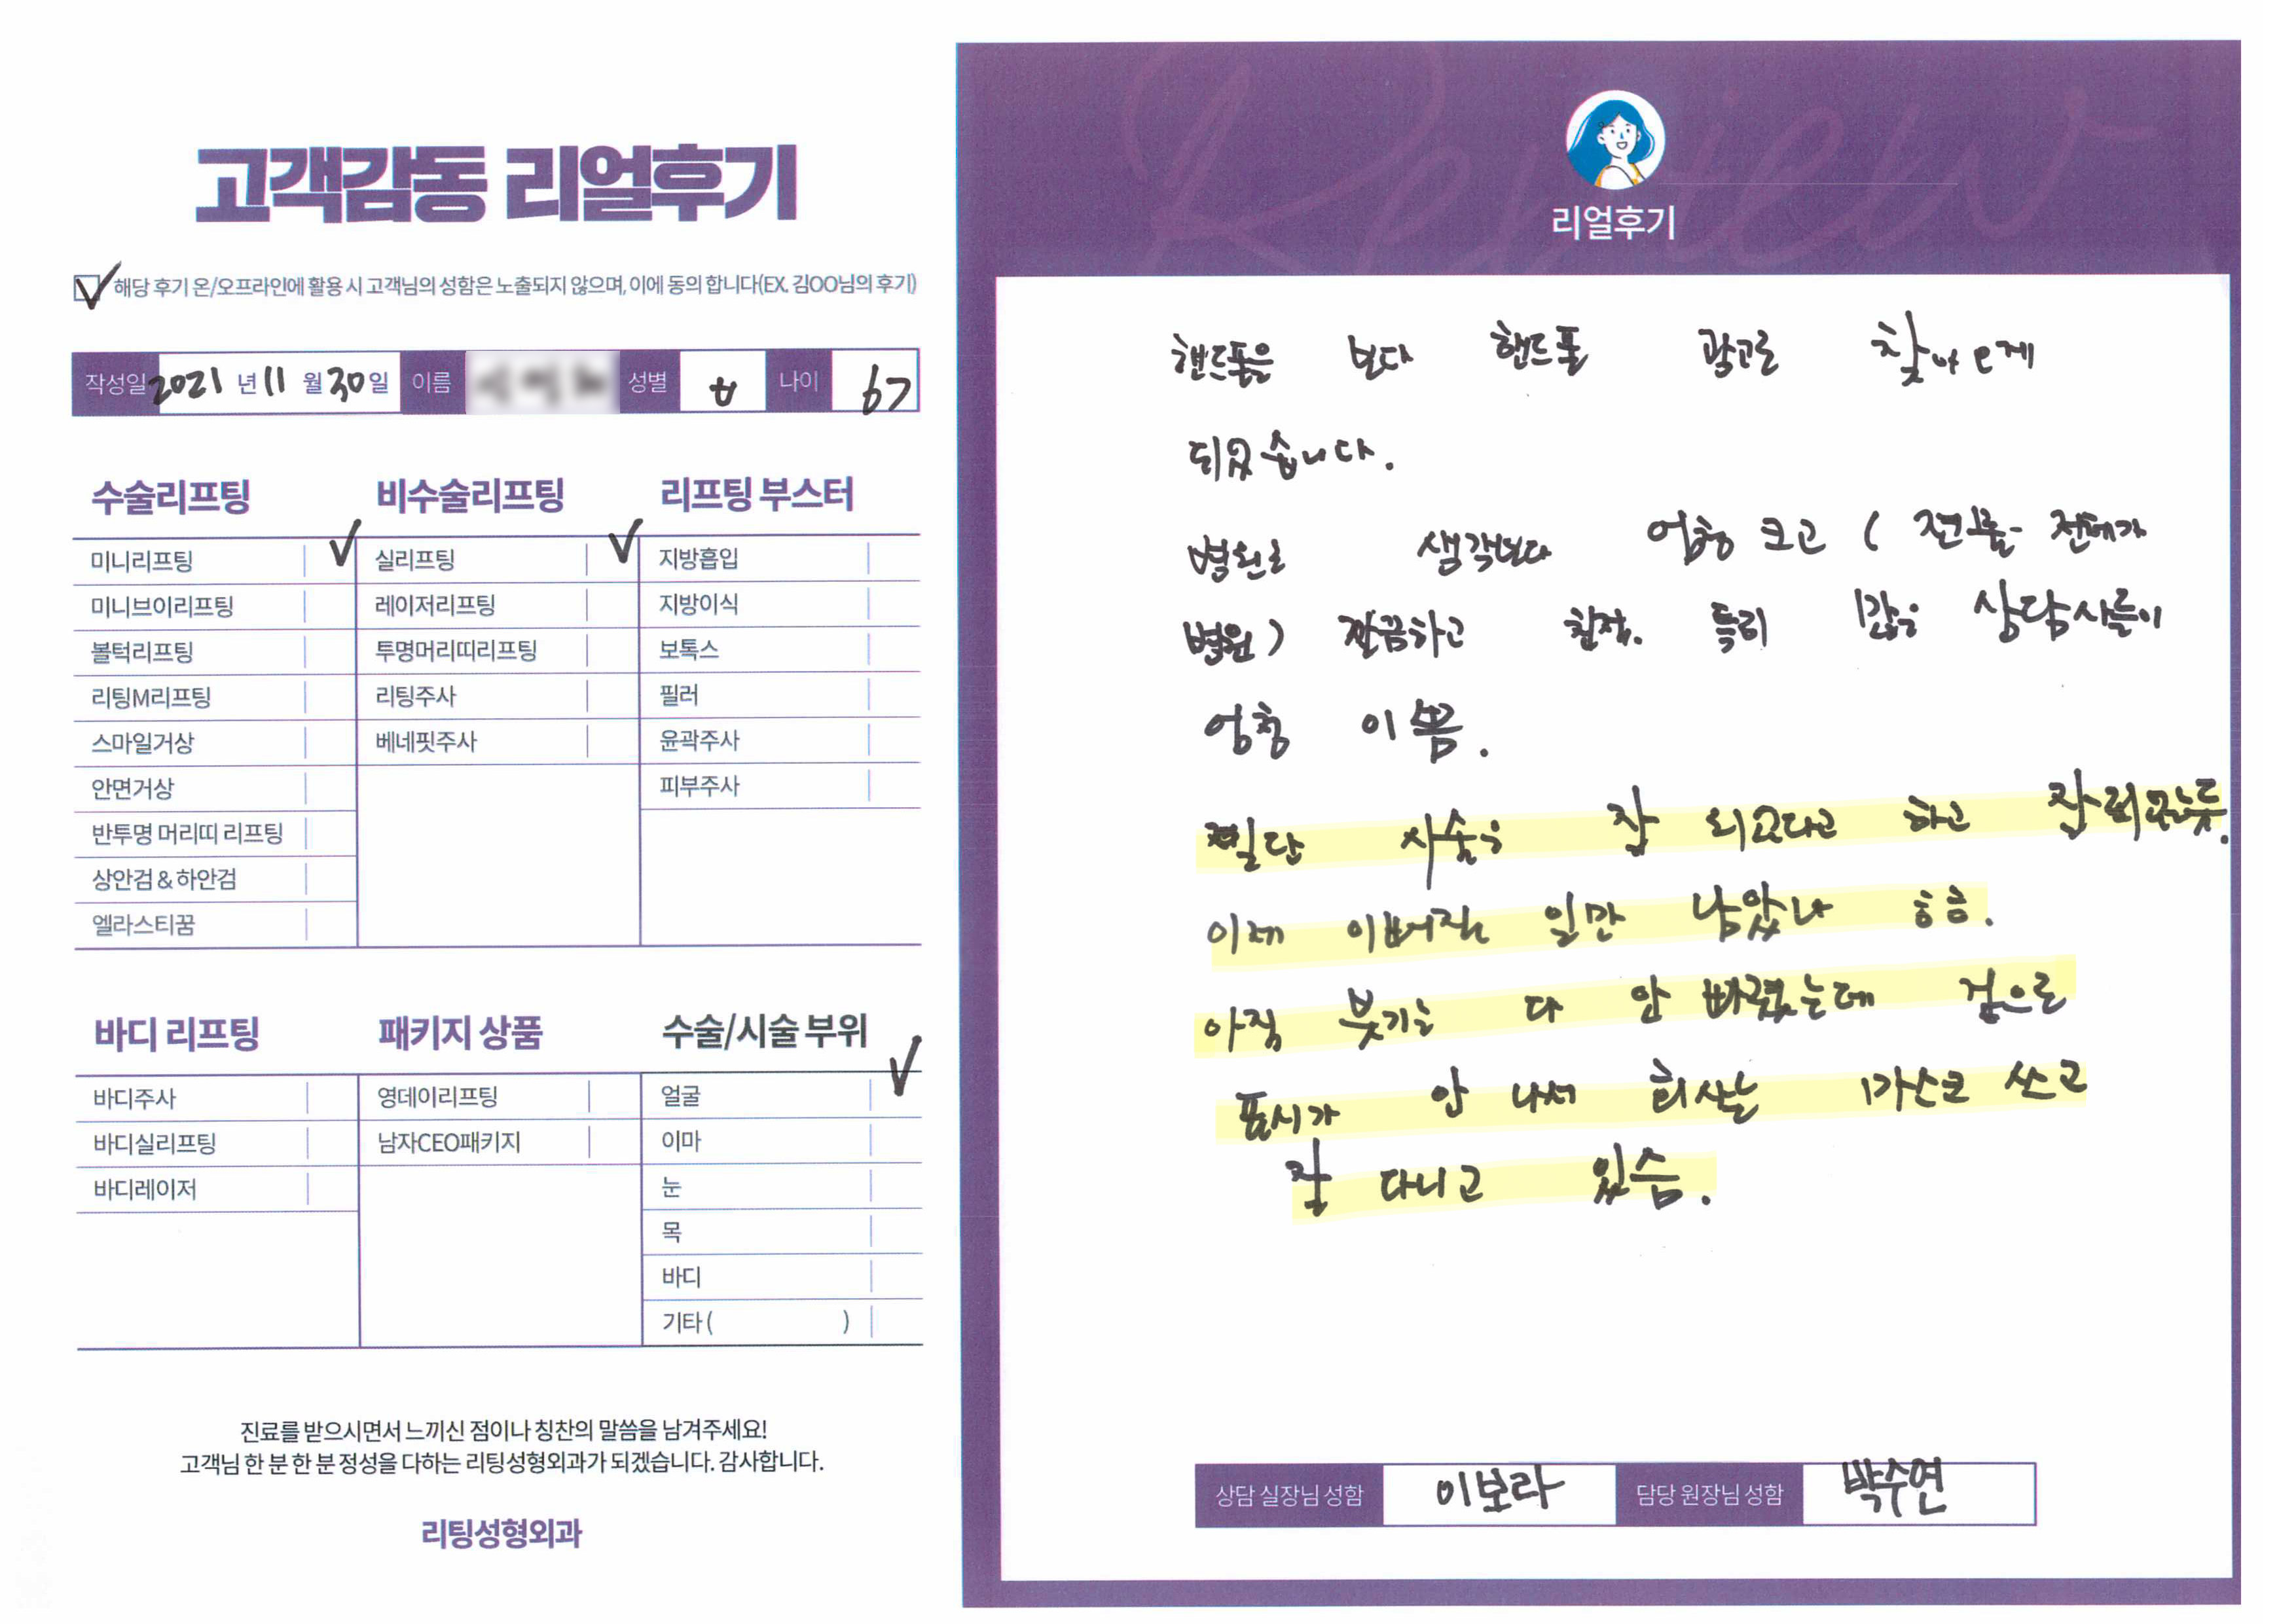 고객감동 리얼후기
해당 후기 온/오프라인에 활용 시 고객님의 성함은 노출되지 않으며, 이에 동의 합니다(EX. 김OO님의 후기)
작성일 2021 년 11 월 30 일 이름 성별 나이 67
수술리프팅
미니리프팅
미니브이리프팅
볼턱리프팅
리팅M리프팅
스마일거상
안면거상
반투명 머리띠 리프팅
상안검 & 하안검
엘라스티꿈
비수술리프팅
실리프팅
레이저리프팅
투명머리띠리프팅
리팅주사
베네핏주사
리프팅 부스터
지방흡입
지방이식
보톡스
필러
윤곽주사
피부주사
바디 리프팅
바디주사
바디실리프팅
바디레이저
패키지 상품
영데이리프팅
남자CEO패키지
수술/시술 부위
얼굴
이마
눈
목
바디
기타 ( )
진료를 받으시면서 느끼신 점이나 칭찬의 말씀을 남겨주세요!
고객님 한 분 한 분 정성을 다하는 리팅성형외과가 되겠습니다. 감사합니다.
리팅성형외과
Review
리얼후기
핸드폰을 보다 핸드폰 광고로 찾아오게
되었습니다.
병원도 생각보다 엄청 크고 ( 건물 전체가
병원 ) 깔끔하고 친절. 특히 상담사들이
엄청 이쁨.
일단 시술은 잘 되었다고 하고 잘 되었는듯.
이제 이뻐질 일만 남았나 흐흐.
아직 붓기는 다 안 빠졌는데 겉으로
표시가 안 나서 회사는 마스크 쓰고
잘 다니고 있습.
상담 실장님 성함 이보라 담당 원장님 성함 박수연